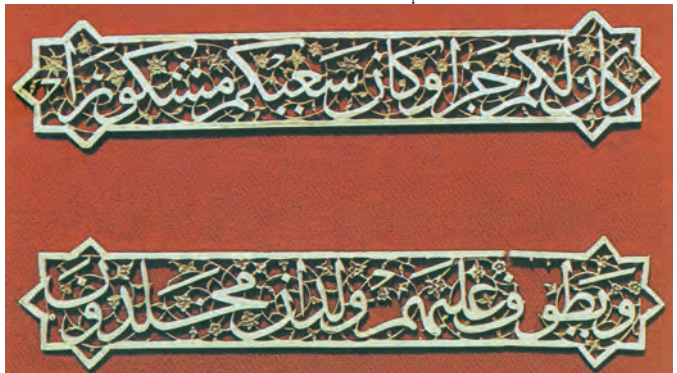 كان لكم جزا وكان سعيكم مشكورا
ويطوف عليهم ولدان مخلدون